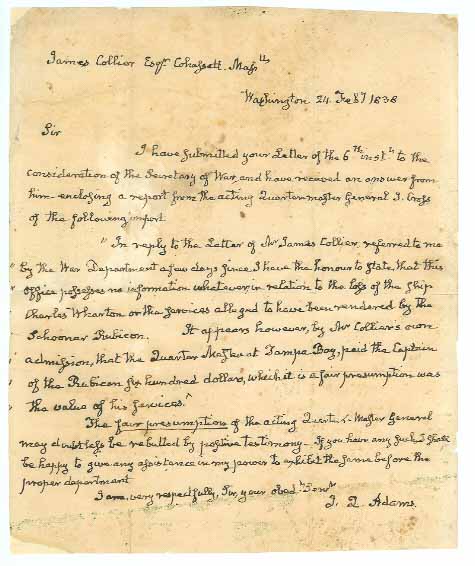 James Collier Esqr. Cohassett. Massts
Washington 24 Feby 1838
Sir
I have submitted your Letter of the 6th instt to the
consideration of the Secretary of War, and have received an answer from
him—enclosing a report from the acting Quartermaster General T. Cross
of the following import.
"In reply to the Letter of Mr James Collier, referred to me
" by the War Department a few days since I have the honour to state, that this
" office possesses no information whatever, in relation to the loss of the Ship
" Charles Wharton or the services alledged to have been rendered by the
" Schooner Rubicon. It appears however, by Mr Collier's own
" admission, that the Quarter Master at Tampa Bay, paid the Captain
" of the Rubicon six hundred dollars, which it is a fair presumption was
" the value of his services."
The fair presumption of the acting Quarter-Master General
may doubtless be rebutted by positive testimony—If you have any such I shall
be happy to give any assistance in my power to exhibit the same before the
proper department
I am, very respectfully, Sir, your obedt Servt
J. Q. Adams.